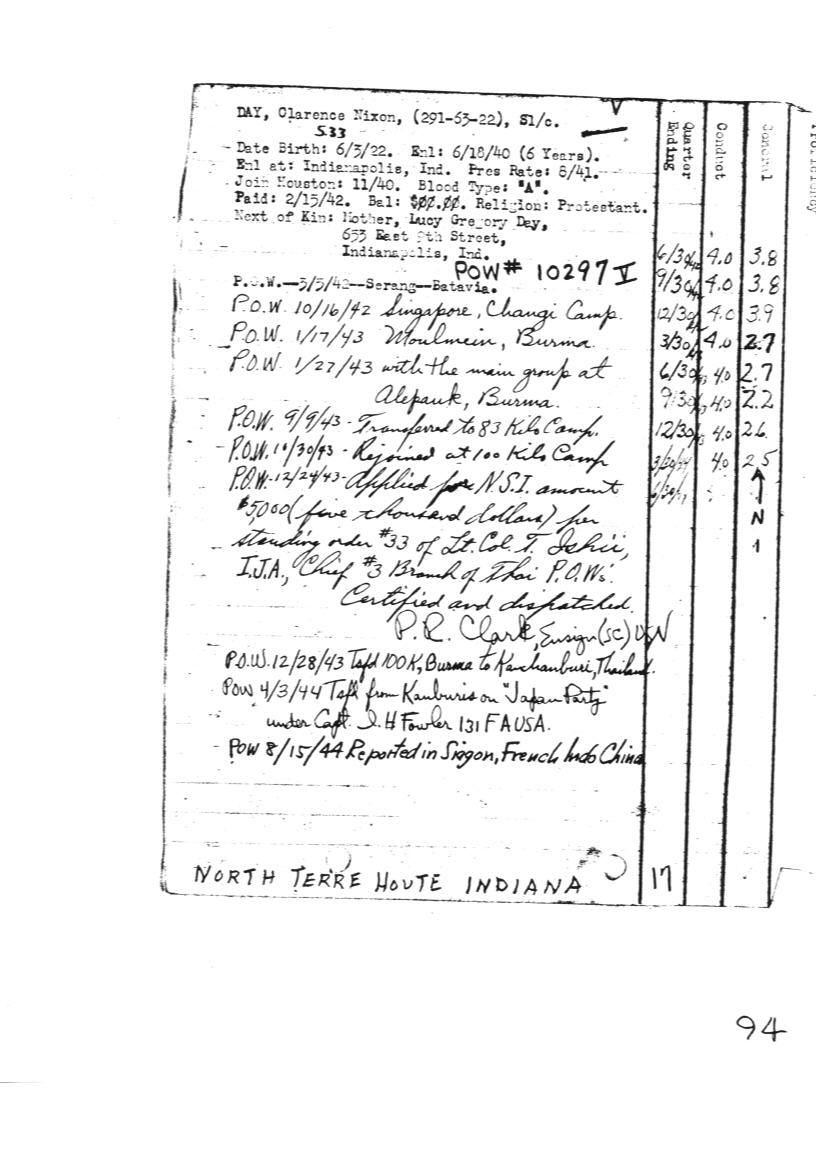 DAY, Clarence Nixon, (291-63-22), S1/c.
533
Date Birth: 6/3/22. Enl: 6/18/40 (6 Years).
Enl at: Indianapolis, Ind. Pres Rate: 8/41.
Join Houston: 11/40. Blood Type: "A".
Paid: 2/15/42. Bal: $00.00. Religion: Protestant.
Next of Kin: Mother, Lucy Gregory Day,
633 East 9th Street,
Indianapolis, Ind.
POW# 10297 V
P.O.W.—3/5/42--Serang--Batavia.
P.O.W. 10/16/42 Singapore, Changi Camp.
P.O.W. 1/17/43 Moulmein, Burma.
P.O.W. 1/27/43 with the main group at
Alepauk, Burma.
P.O.W. 9/9/43 - Transferred to 83 Kilo Camp.
P.O.W. 10/30/43 - Rejoined at 100 Kilo Camp
P.O.W. 12/24/43 - Applied for N.S.I. amount
$5,000 (five thousand dollars) per
standing order #33 of Lt. Col. T. Ishii,
I.J.A., Chief #3 Branch of Thai P.O.W's.
Certified and dispatched.
P.R. Clark, Ensign (SC) USN
P.O.W. 12/28/43 Tsfd 100K, Burma to Kanchanburi, Thailand.
POW 4/3/44 Tsfd from Kanburi on "Japan Party"
under Capt. I. H Fowler 131 FA USA.
POW 8/15/44 Reported in Siagon, French Indo China
NORTH TERRE HOUTE INDIANA
17
Quarter Ending
Conduct
General
6/30/42 4.0 3.8
9/30/42 4.0 3.8
12/30/42 4.0 3.9
3/30/43 4.0 2.7
6/30/43 4.0 2.7
9/30/43 4.0 2.2
12/30/43 4.0 2.6
3/30/44 4.0 2.5
N
1
94